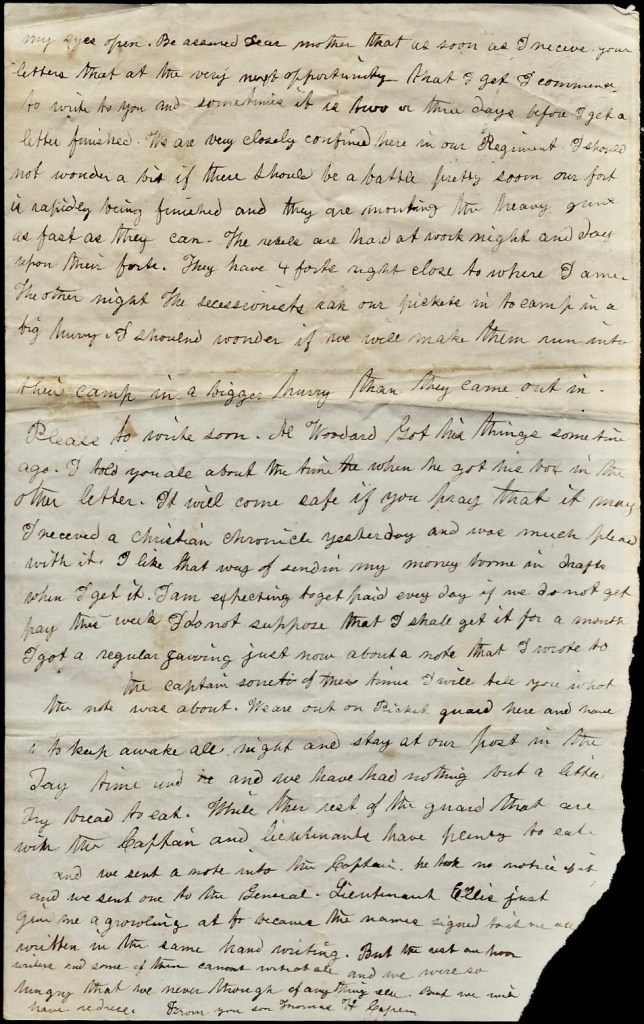 my eyes open. Be assured Dear mother that as soon as I receve your
letters that at the very next opportunity that I get I commence
to write to you and sometimes it is two or three days before I get a
letter finished. We are very closely confined here in our Regiment I should
not wonder a bit if there should be a battle pretty soon our fort
is rapidly being finished and they are mounting the heavy guns
as fast as they can. The rebels are hard at work night and day
upon their forts. They have 4 forts right close to where I am
The other night The secessionists ran our pickets in to camp in a
big hurry. I should wonder if we will make them run into
their camp in a bigger hurry than they came out in.
Please to write soon. Al Woodard Got his things sometime
ago. I told you all about the time the when he got his box in the
other letter. It will come safe if you pray that it may
I receved a christian chronicle yesterday and was much pleasd
with it. I like that way of sendin my money home in drafts
when I get it. I am expecting to get paid every day if we do not get
pay this week I do not suppose that I shall get it for a month
I got a regular jawing just now about a note that I wrote to
the captain of these times I will tell you what
the note was about. We are out on Picket guard here and have
to keep awake all night and stay at our post in the
Day time and we have had nothing but a little
Dry bread to eat. While the rest of the guard that are
with the Captain and lieutenants have plenty to eat.
and we sent a note into the Captain. he took no notice of it
and we sent one to the General. Lieutenant Ellis just
give me a growling at because the names signed to it were all
written in the same hand writing. But the rest are poor
writers and some of them cannot write at all and we were so
hungry that we never though of anything else. But we will
have redress. From you son Thomas H